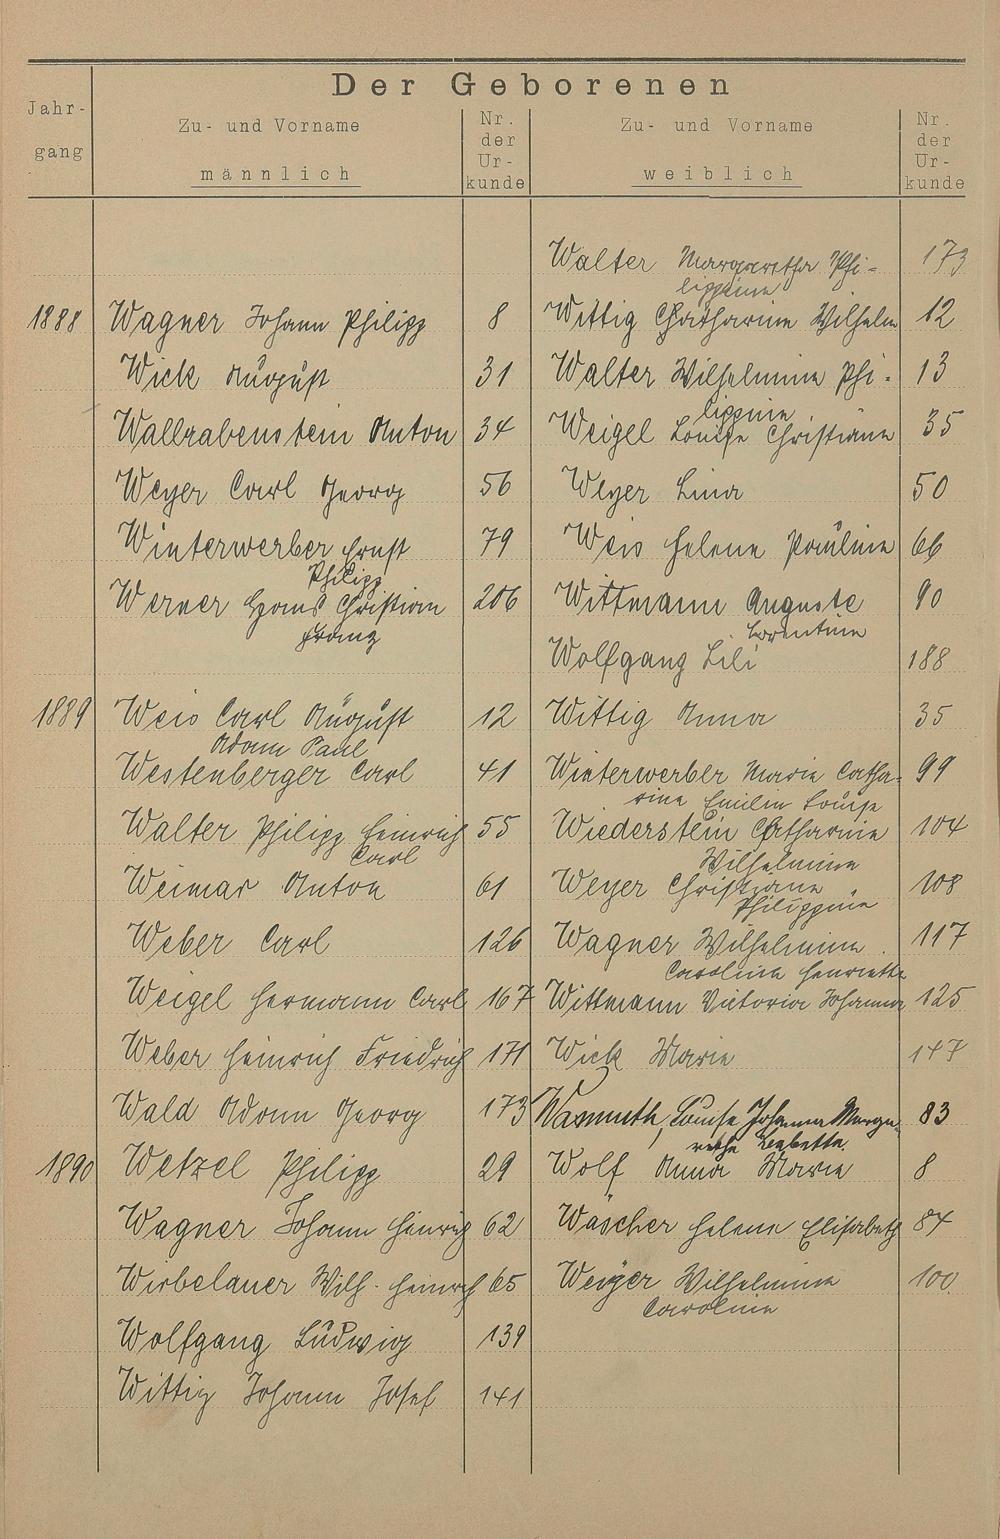 Der Geborenen
Jahr-
gang
Zu- und Vorname
männlich
Nr.
der
Ur-
kunde
Zu- und Vorname
weiblich
Nr.
der
Ur-
kunde
Walter Margaretha Phi- 173
lippine
1888 Wagner Johann Philipp 8 Wittig Catharine Wilhelm 12
Wick August 31 Walter Wilhelmine Phi- 13
lippine
Wallrabenstein Anton 34 Weigel Louise Christiane 35
Weyer Carl Georg 56 Weyer Lina 50
Winterwerber Ernst 79 Weis Helene Pauline 66
Philipp
Werner Hans Christian 206 Wittmann Auguste 90
Franz Lorentine
Wolfgang Lili 188
1889 Weis Carl August 12 Wittig Anna 35
Adam Paul
Westenberger Carl 41 Winterwerber Marie Catha- 99
rine Emilie Louise
Walter Philipp Heinrich 55 Wiederstein Catharine 104
Carl Wilhelmine
Weimar Anton 61 Weyer Christiane 108
Philippine
Weber Carl 126 Wagner Wilhelmine 117
Caroline Henriette
Weigel Hermann Carl 167 Wittmann Victoria Johanna 125
Weber Heinrich Friedrich 171 Wick Marie 147
Wald Adam Georg 173 Wasmuth, Louise Johanna Marga- 83
rethe Babette.
1890 Wetzel Philipp 29 Wolf Anna Marie 8
Wagner Johann Heinrich 62 Wäscher Helene Elisabeth 84
Wirbelauer Wilh. Heinrich 65 Weyer Wilhelmine 100
Caroline
Wolfgang Ludwig 139
Wittig Johann Josef 141